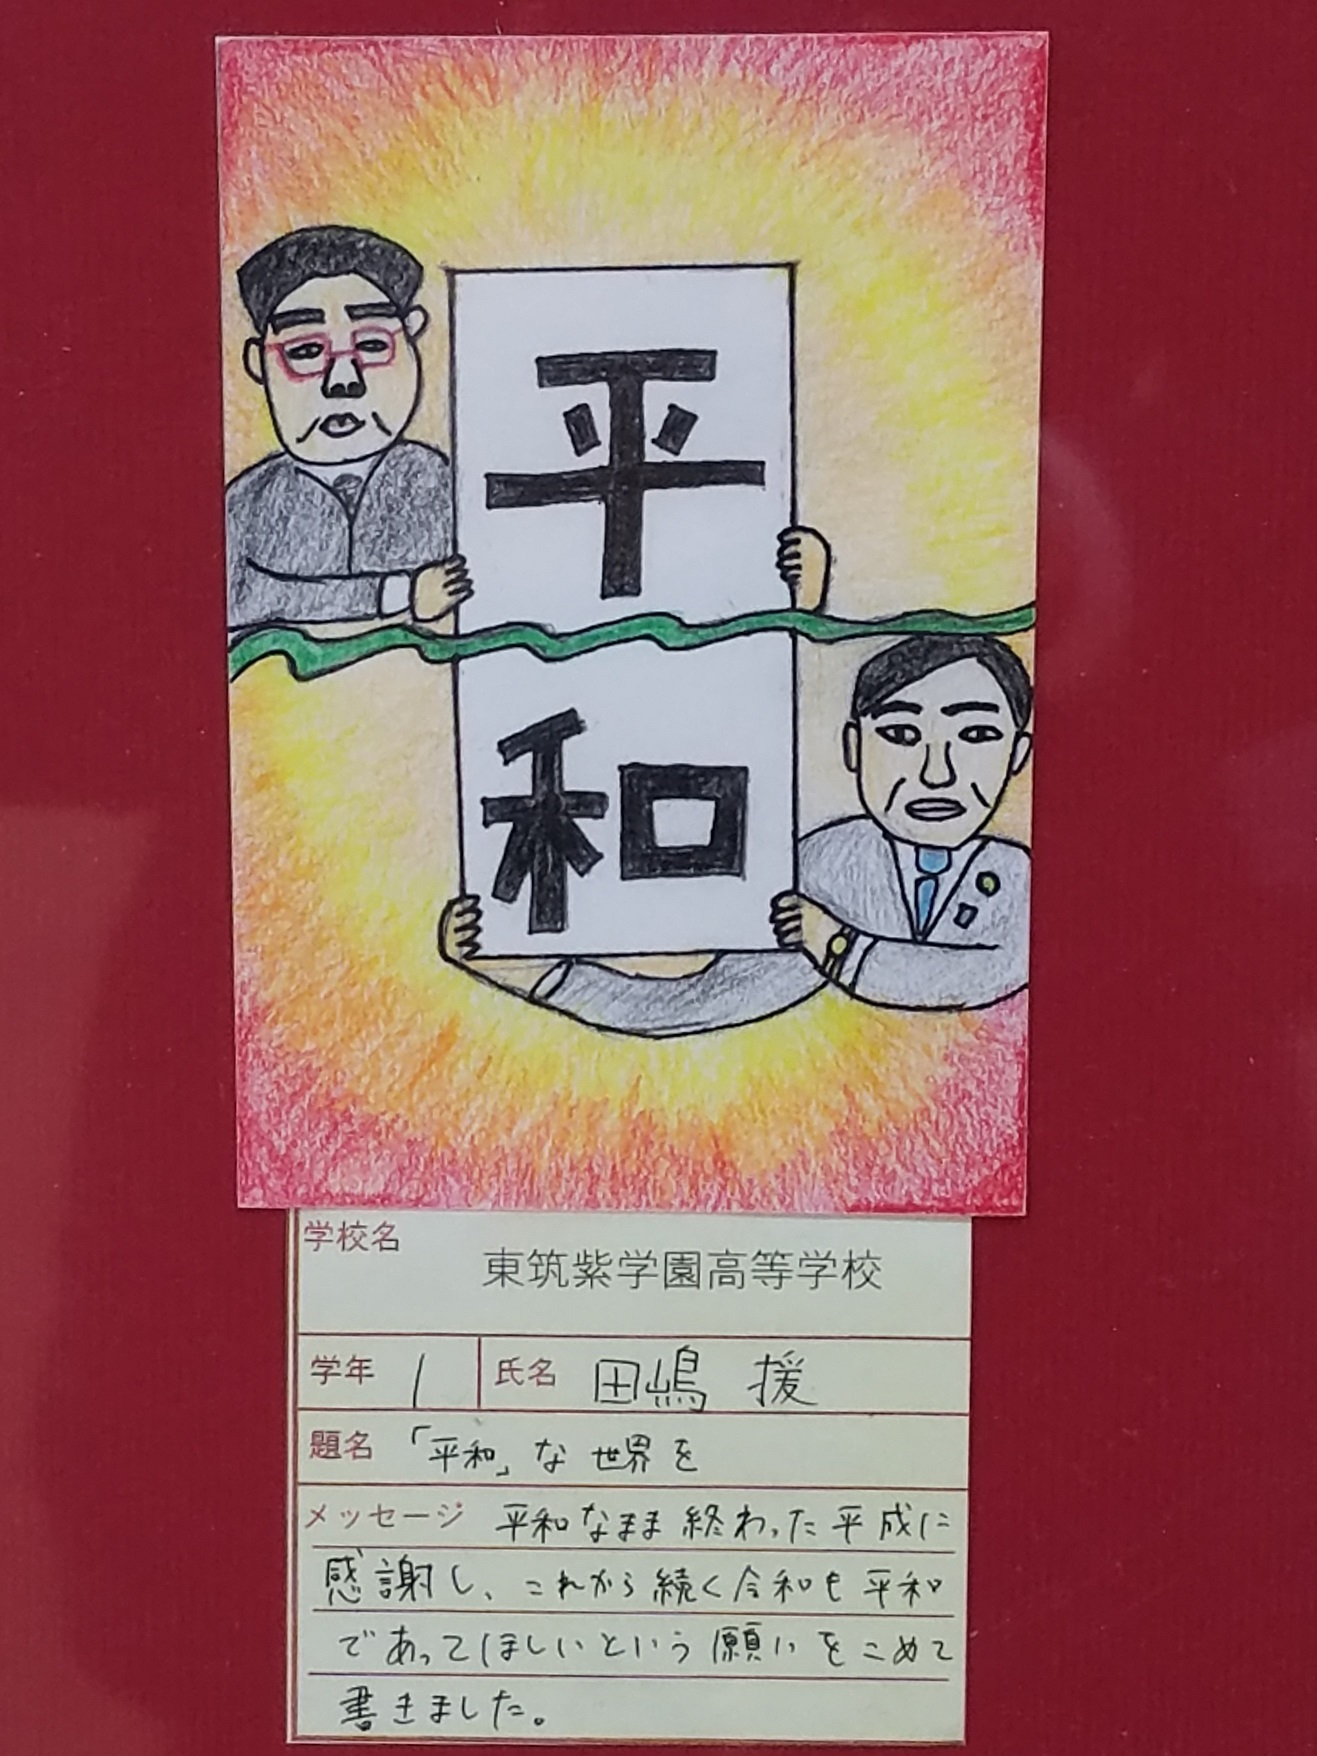 平
和
学校名
東筑紫学園高等学校
学年 1 氏名 田嶋 援
題名 「平和」な世界を
メッセージ 平和なまま終わった平成に
感謝し、これから続く令和も平和
であってほしいという願いをこめて
書きました。